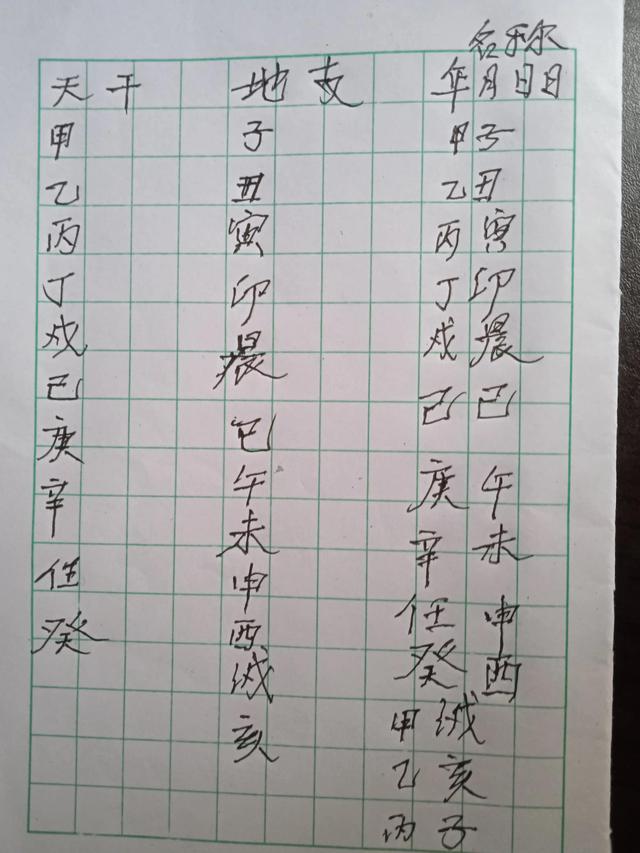 名称
天干 地支 年月日日
甲 子 甲子
乙 丑 乙丑
丙 寅 丙寅
丁 印 丁印
戍 晨 戍晨
已 巳 己巳
庚 午 庚午
辛 未 辛未
任 申 任申
癸 酉 癸酉
诚 甲诚
亥 乙亥
丙子